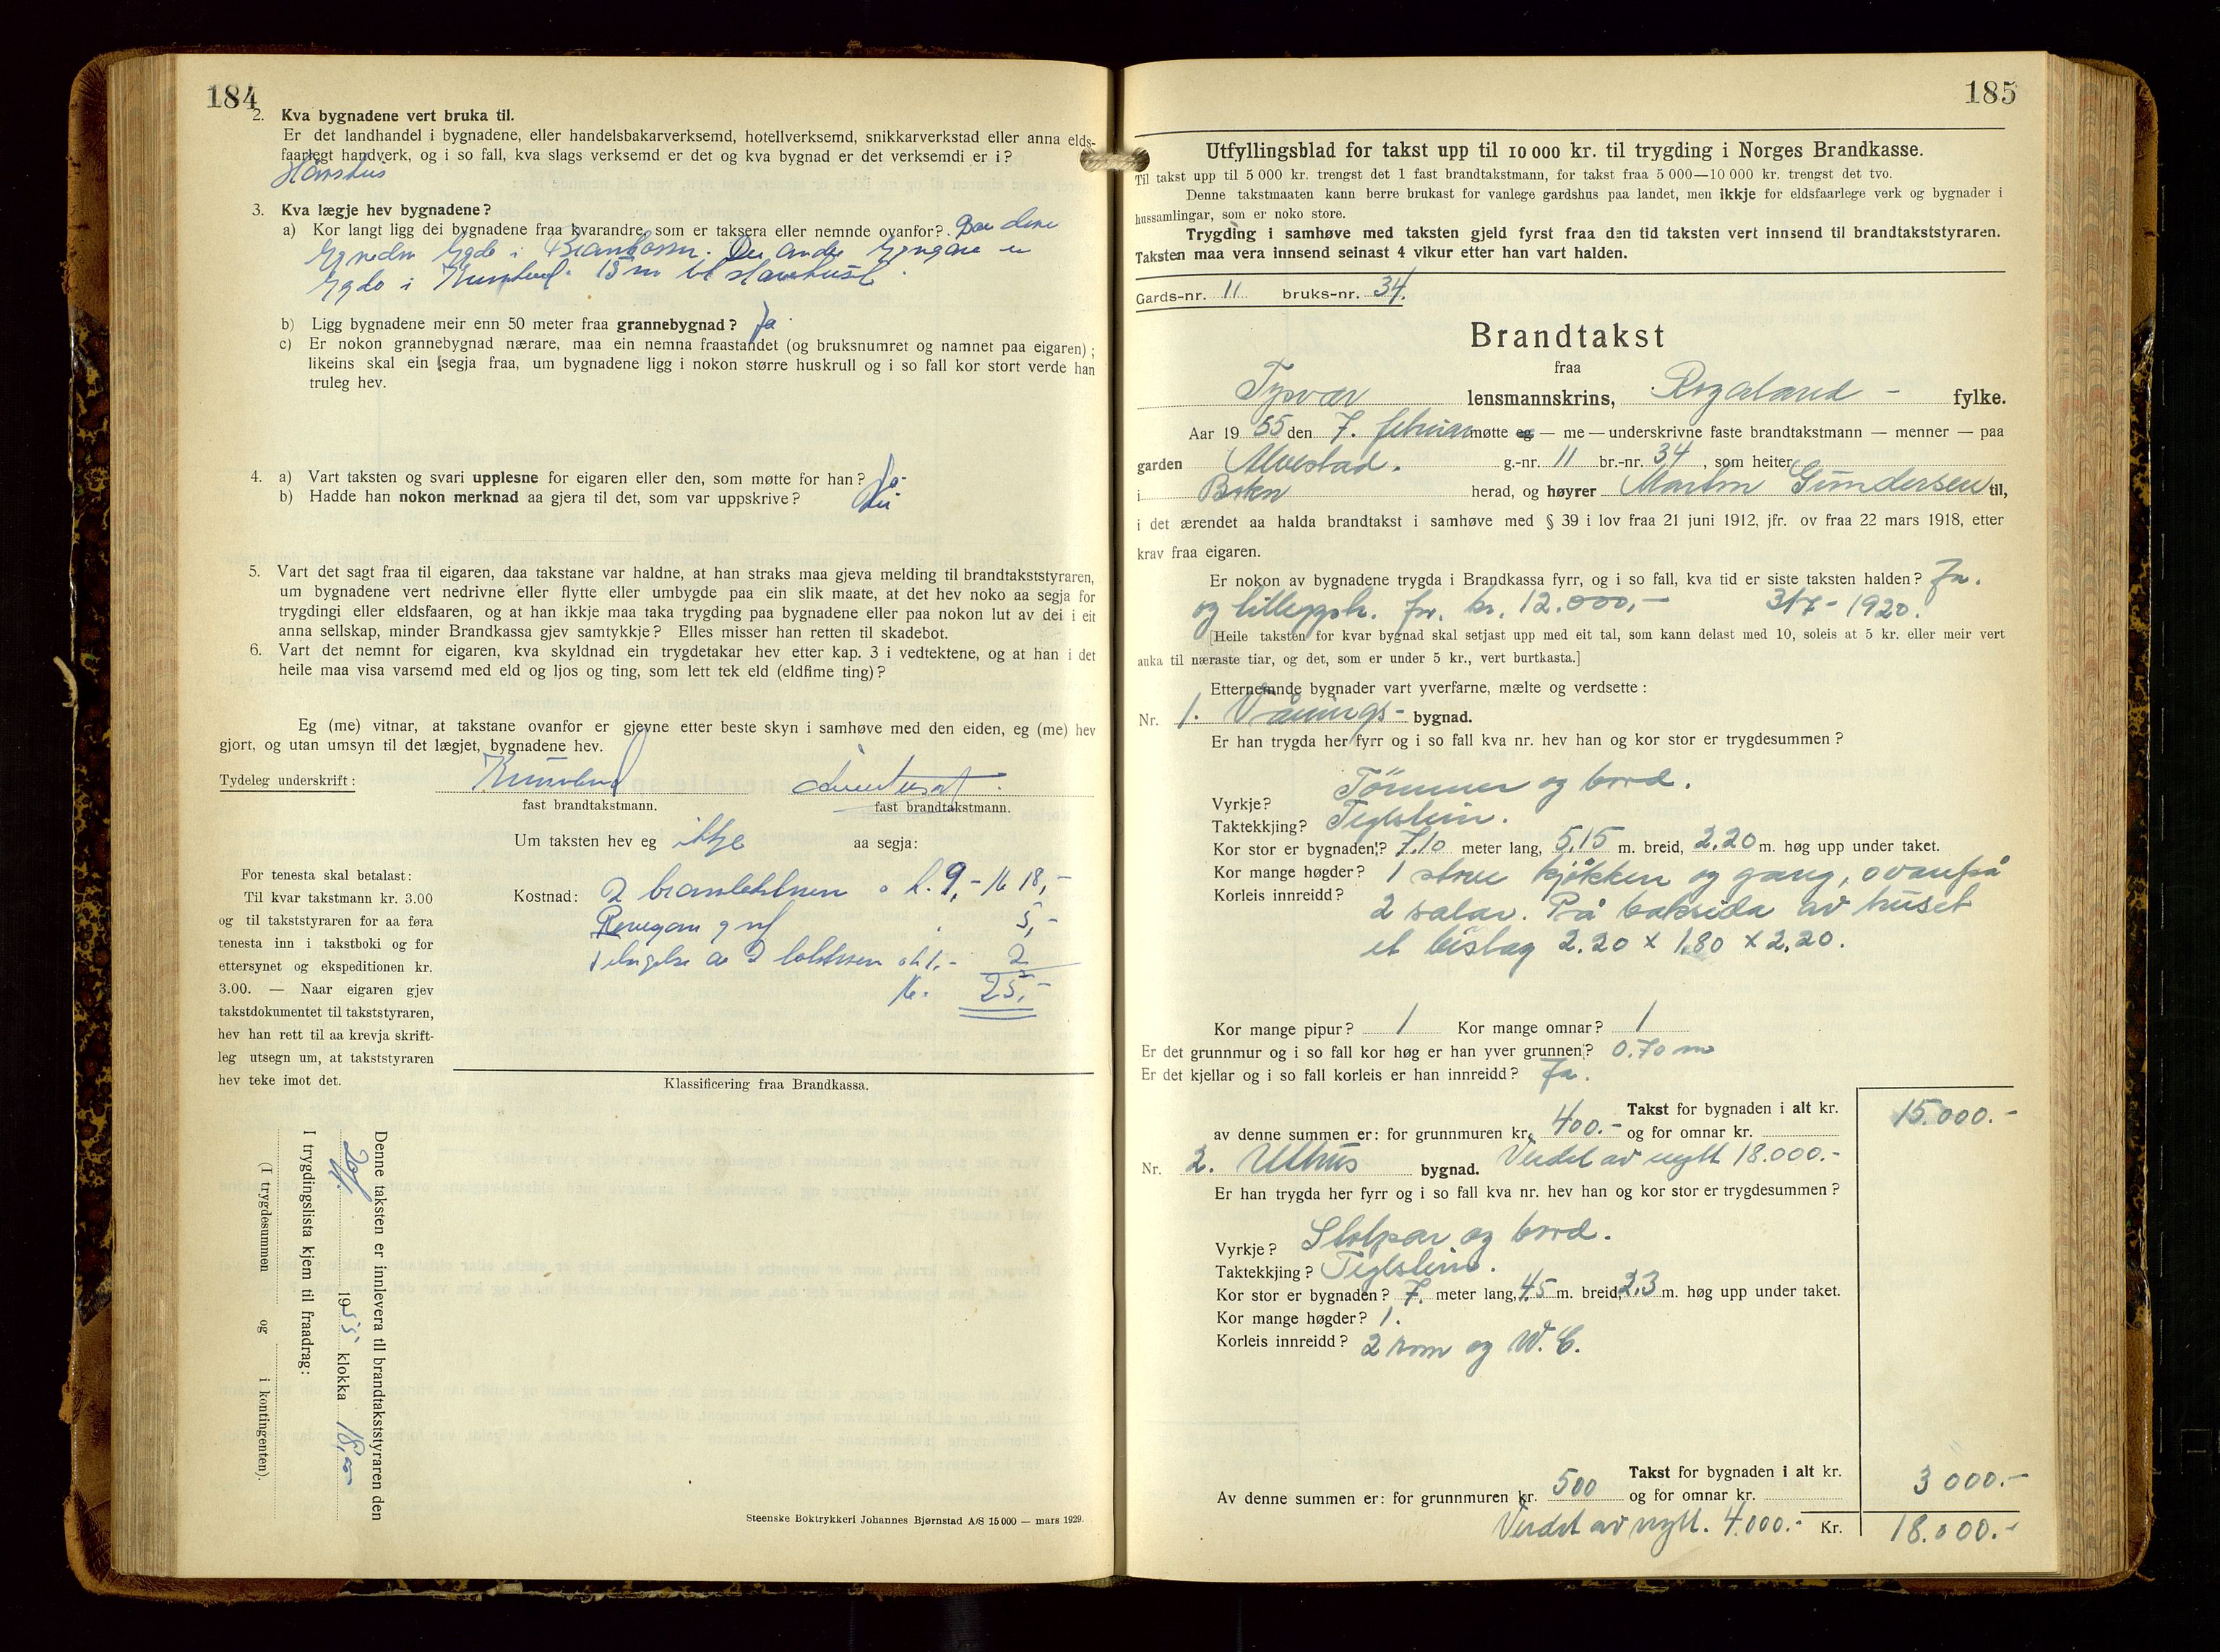 184
2. Kva bygnadene vert bruka til.
Er det landhandel i bygnadene, eller handelsbakarverksemd, hotellverksemd, snikkarverkstad eller anna elds-
faarlegt handverk, og i so fall, kva slags verksemd er det og kva bygnad er det verksemdi er i?
3. Kva lægje hev bygnadene?
a) Kor langt ligg dei bygnadene fraa kvarandre, som er taksera eller nemnde ovanfor?
i
i 15 m til
b) Ligg bygnadene meir enn 50 meter fraa grannebygnad? Ja
c) Er nokon grannebygnad nærare, maa ein nemna fraastandet (og bruksnumret og namnet paa eigaren);
likeins skal ein segja fraa, um bygnadene ligg i nokon større huskrull og i so fall kor stort verde han
truleg hev.
4. a) Vart taksten og svari upplesne for eigaren eller den, som møtte for han? Ja
b) Hadde han nokon merknad aa gjera til det, som var uppskrive? Nei
5. Vart det sagt fraa til eigaren, daa takstane var haldne, at han straks maa gjeva melding til brandtakststyraren,
um bygnadene vert nedrivne eller flytte eller umbygde paa ein slik maate, at det hev noko aa segja for
trygdingi eller eldsfaaren, og at han ikkje maa taka trygding paa bygnadene eller paa nokon lut av dei i eit
anna sellskap, minder Brandkassa gjev samtykkje? Elles misser han retten til skadebot.
6. Vart det nemnt for eigaren, kva skyldnad ein trygdetakar hev etter kap. 3 i vedtektene, og at han i det
heile maa visa varsemd med eld og ljos og ting, som lett tek eld (eldfime ting)?
Eg (me) vitnar, at takstane ovanfor er gjevne etter beste skyn i samhøve med den eiden, eg (me) hev
gjort, og utan umsyn til det lægjet, bygnadene hev.
Tydeleg underskrift:
fast brandtakstmann. fast brandtakstmann.
Um taksten hev eg ikkje aa segja:
For tenesta skal betalast:
Til kvar takstmann kr. 3.00
og til takststyraren for aa føra
tenesta inn i takstboki og for
ettersynet og ekspeditionen kr.
3.00. — Naar eigaren gjev
takstdokumentet til takststyraren,
hev han rett til aa krevja skrift-
leg utsegn um, at takststyraren
hev teke imot det.
Kostnad: 2 9,- 18,-
5,-
2 2
25,-
Klassificering fraa Brandkassa.
Denne taksten er innlevera til brandtakststyraren den
1955 klokka 18,00
I trygdingslista kjem til fraadrag:
(I trygdesummen og i kontingenten).
Steenske Boktrykkeri Johannes Bjørnstad A/S 15 000 — mars 1929.
185
Utfyllingsblad for takst upp til 10 000 kr. til trygding i Norges Brandkasse.
Til takst upp til 5 000 kr. trengst det 1 fast brandtakstmann, for takst fraa 5 000—10 000 kr. trengst det tvo.
Denne takstmaaten kann berre brukast for vanlege gardshus paa landet, men ikkje for eldsfaarlege verk og bygnader i
hussamlingar, som er noko store.
Trygding i samhøve med taksten gjeld fyrst fraa den tid taksten vert innsend til brandtakststyraren.
Taksten maa vera innsend seinast 4 vikur etter han vart halden.
Gards-nr. 11 bruks-nr. 34.
Brandtakst
fraa
Tysvær lensmannskrins, Rogaland - fylke.
Aar 1955 den 7. februar møtte eg — me — underskrivne faste brandtakstmann — menner — paa
garden Alvestad. g.-nr. 11 br.-nr. 34, som heiter
i Bokn herad, og høyrer Martin Gundersen til,
i det ærendet aa halda brandtakst i samhøve med § 39 i lov fraa 21 juni 1912, jfr. ov fraa 22 mars 1918, etter
krav fraa eigaren.
Er nokon av bygnadene trygda i Brandkassa fyrr, og i so fall, kva tid er siste taksten halden? Ja.
og tilleggsk. for kr. 12.000,- 31/7 - 1920.
[Heile taksten for kvar bygnad skal setjast upp med eit tal, som kann delast med 10, soleis at 5 kr. eller meir vert
auka til næraste tiar, og det, som er under 5 kr., vert burtkasta.]
Etternemnde bygnader vart yverfarne, mælte og verdsette:
Nr. 1. Vånings- bygnad.
Er han trygda her fyrr og i so fall kva nr. hev han og kor stor er trygdesummen?
Vyrkje? Tömmer og bord.
Taktekkjing? Teglstein.
Kor stor er bygnaden? 7,10 meter lang, 5,15 m. breid, 2,20 m. høg upp under taket.
Kor mange høgder? 1 stove kjøkken og gang, ovanpå
Korleis innreidd? 2 salar. På baksida av huset
et bislag 2.20 x 1.80 x 2,20.
Kor mange pipur? 1 Kor mange omnar? 1
Er det grunnmur og i so fall kor høg er han yver grunnen? 0.70 m
Er det kjellar og i so fall korleis er han innreidd? Ja.
Takst for bygnaden i alt kr. 15.000.-
av denne summen er: for grunnmuren kr. 400.- og for omnar kr.
Nr. 2. Uthus bygnad. Verdet av nytt 18.000.-
Er han trygda her fyrr og i so fall kva nr. hev han og kor stor er trygdesummen?
Vyrkje? Stolpar og bord.
Taktekkjing? Teglstein.
Kor stor er bygnaden? 7. meter lang, 4.5 m. breid, 2.3 m. høg upp under taket.
Kor mange høgder? 1.
Korleis innreidd? 2 rom og W.C.
Takst for bygnaden i alt kr. 3 000.-
Av denne summen er: for grunnmuren kr. 500 og for omnar kr.
Verdet av nytt. 4.000.- Kr. 18.000.-